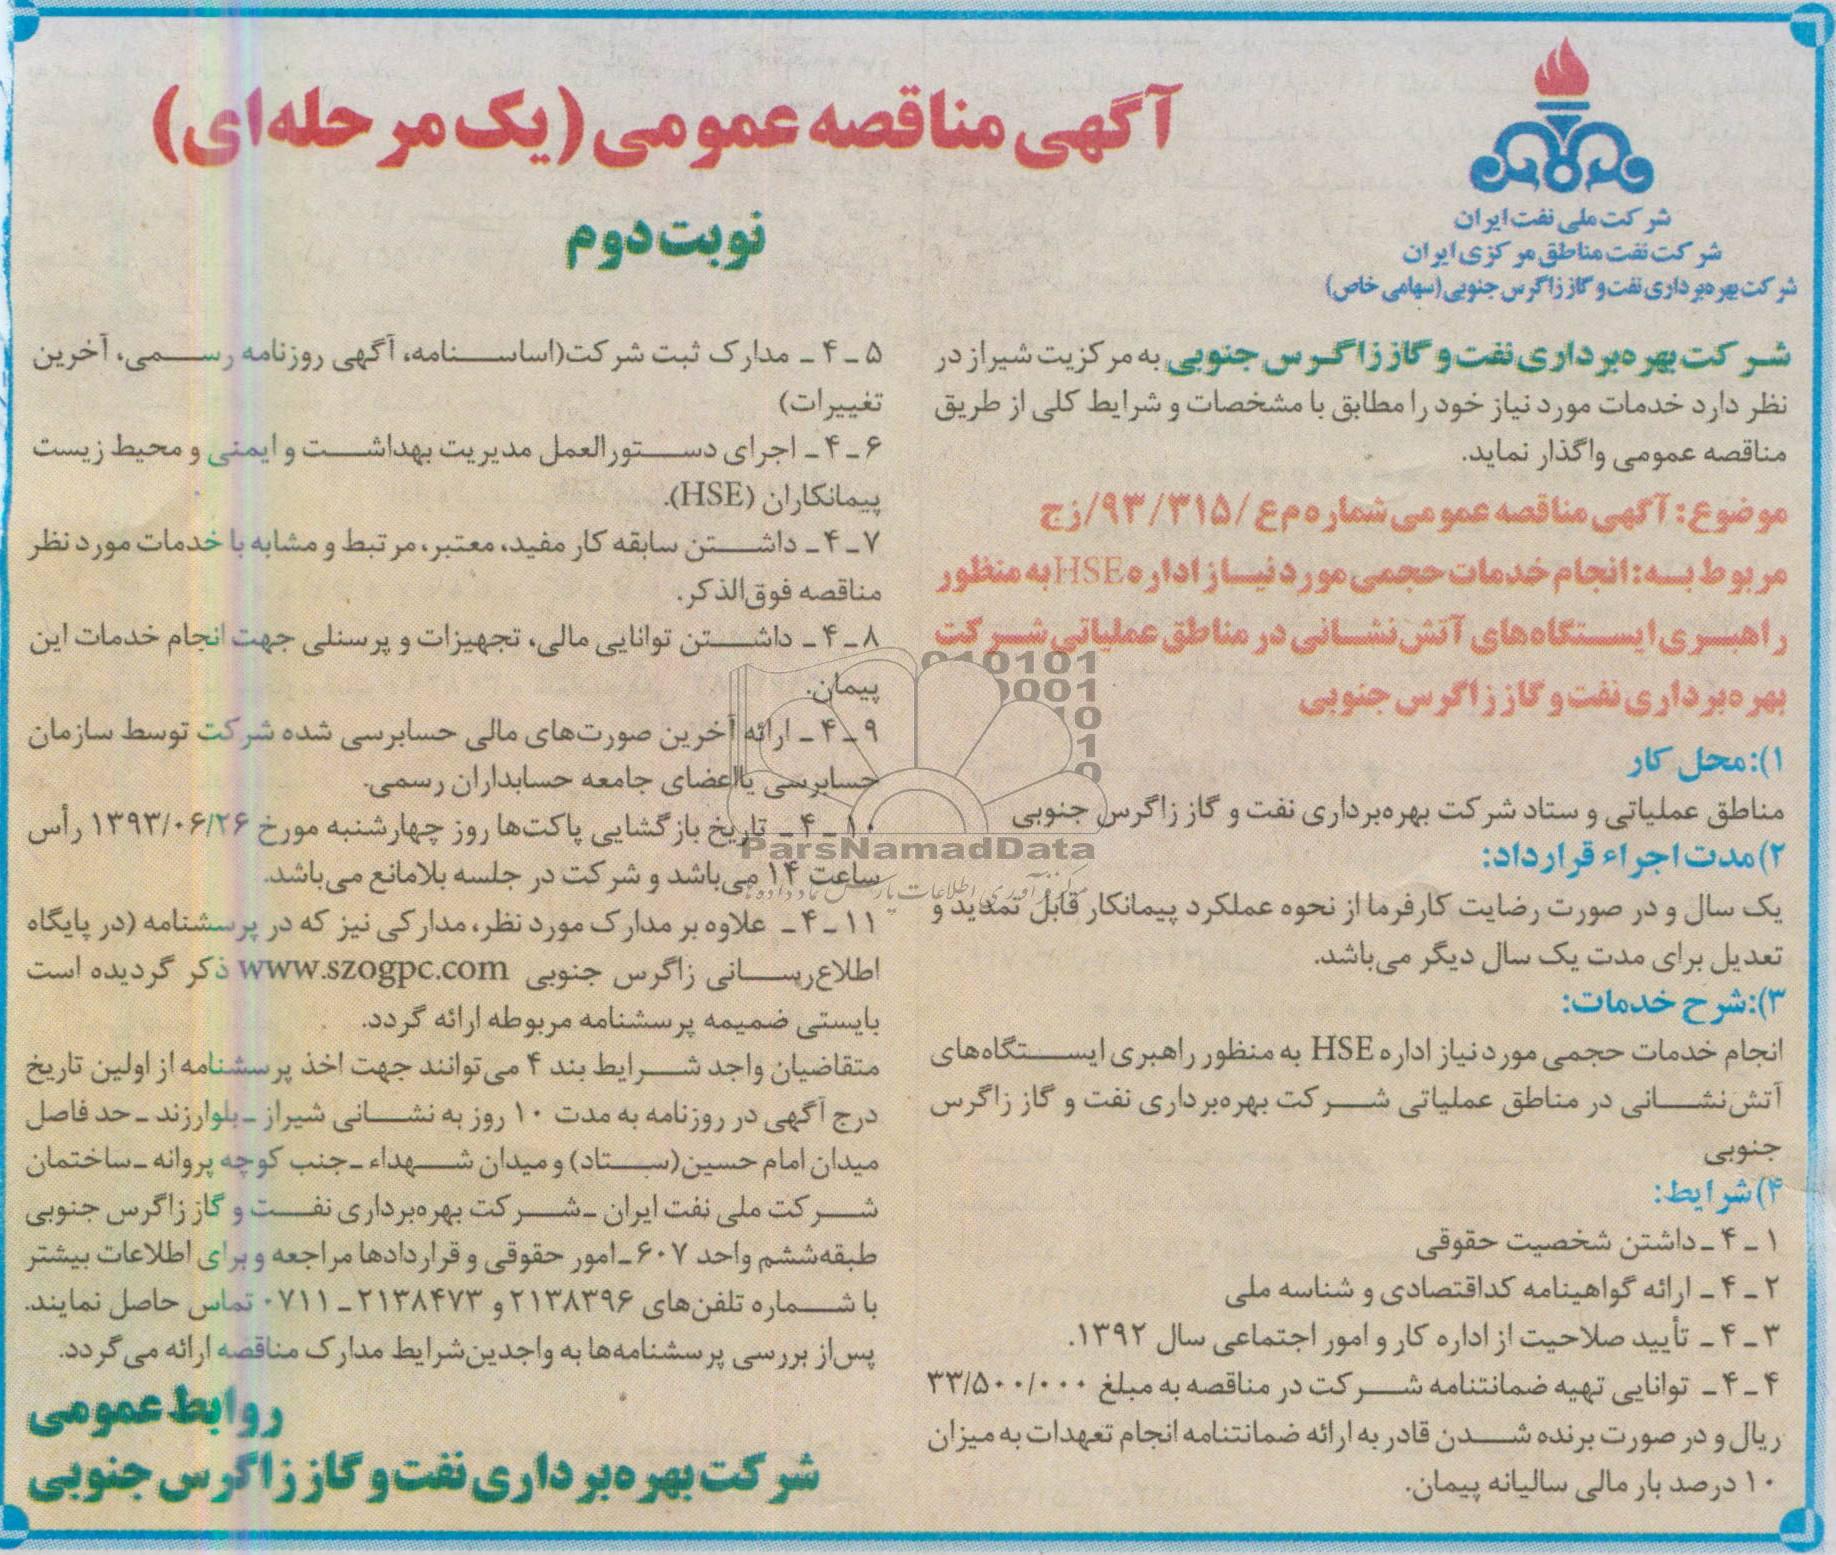 شرکت ملی نفت ایران
شرکت نفت مناطق مرکزی ایران
شرکت بهره‌برداری نفت و گاز زاگرس جنوبی (سهامی خاص)
آگهی مناقصه عمومی (یک مرحله‌ای)
نوبت دوم
شرکت بهره‌برداری نفت و گاز زاگرس جنوبی به مرکزیت شیراز در
نظر دارد خدمات مورد نیاز خود را مطابق با مشخصات و شرایط کلی از طریق
مناقصه عمومی واگذار نماید.
موضوع: آگهی مناقصه عمومی شماره م ع /۹۳/۳۱۵/ز ج
مربوط به: انجام خدمات حجمی مورد نیاز اداره HSE به منظور
راهبری ایستگاه‌های آتش‌نشانی در مناطق عملیاتی شرکت
بهره‌برداری نفت و گاز زاگرس جنوبی
۱): محل کار
مناطق عملیاتی و ستاد شرکت بهره‌برداری نفت و گاز زاگرس جنوبی
۲) مدت اجراء قرارداد:
یک سال و در صورت رضایت کارفرما از نحوه عملکرد پیمانکار قابل تمدید و
تعدیل برای مدت یک سال دیگر می‌باشد.
۳): شرح خدمات:
انجام خدمات حجمی مورد نیاز اداره HSE به منظور راهبری ایستگاه‌های
آتش‌نشانی در مناطق عملیاتی شرکت بهره‌برداری نفت و گاز زاگرس
جنوبی
۴) شرایط:
۱ ـ ۴ ـ داشتن شخصیت حقوقی
۲ ـ ۴ ـ ارائه گواهینامه کداقتصادی و شناسه ملی
۳ ـ ۴ ـ تأیید صلاحیت از اداره کار و امور اجتماعی سال ۱۳۹۲.
۴ ـ ۴ ـ توانایی تهیه ضمانتنامه شرکت در مناقصه به مبلغ ۳۳/۵۰۰/۰۰۰
ریال و در صورت برنده شدن قادر به ارائه ضمانتنامه انجام تعهدات به میزان
۱۰ درصد بار مالی سالیانه پیمان.
۵ ـ ۴ ـ مدارک ثبت شرکت (اساسنامه، آگهی روزنامه رسمی، آخرین
تغییرات)
۶ ـ ۴ ـ اجرای دستورالعمل مدیریت بهداشت و ایمنی و محیط زیست
پیمانکاران (HSE).
۷ ـ ۴ ـ داشتن سابقه کار مفید، معتبر، مرتبط و مشابه با خدمات مورد نظر
مناقصه فوق‌الذکر.
۸ ـ ۴ ـ داشتن توانایی مالی، تجهیزات و پرسنلی جهت انجام خدمات این
پیمان.
۹ ـ ۴ ـ ارائه آخرین صورت‌های مالی حسابرسی شده شرکت توسط سازمان
حسابرسی یا اعضای جامعه حسابداران رسمی.
۱۰ ـ ۴ ـ تاریخ بازگشایی پاکت‌ها روز چهارشنبه مورخ ۱۳۹۳/۰۶/۲۶ رأس
ساعت ۱۴ می‌باشد و شرکت در جلسه بلامانع می‌باشد.
۱۱ ـ ۴ ـ علاوه بر مدارک مورد نظر، مدارکی نیز که در پرسشنامه (در پایگاه
اطلاع‌رسانی زاگرس جنوبی www.szogpc.com ذکر گردیده است
بایستی ضمیمه پرسشنامه مربوطه ارائه گردد.
متقاضیان واجد شرایط بند ۴ می‌توانند جهت اخذ پرسشنامه از اولین تاریخ
درج آگهی در روزنامه به مدت ۱۰ روز به نشانی شیراز ـ بلوارزند ـ حد فاصل
میدان امام حسین (ستاد) و میدان شهداء ـ جنب کوچه پروانه ـ ساختمان
شرکت ملی نفت ایران ـ شرکت بهره‌برداری نفت و گاز زاگرس جنوبی
طبقه ششم واحد ۶۰۷ ـ امور حقوقی و قراردادها مراجعه و برای اطلاعات بیشتر
با شماره تلفن‌های ۲۱۳۸۳۹۶ و ۲۱۳۸۴۷۳ ـ ۰۷۱۱ تماس حاصل نمایند.
پس از بررسی پرسشنامه‌ها به واجدین شرایط مدارک مناقصه ارائه می‌گردد.
روابط عمومی
شرکت بهره‌برداری نفت و گاز زاگرس جنوبی
ParsNamadData
مرکز فرآوری اطلاعات پارس نماد داده‌ها